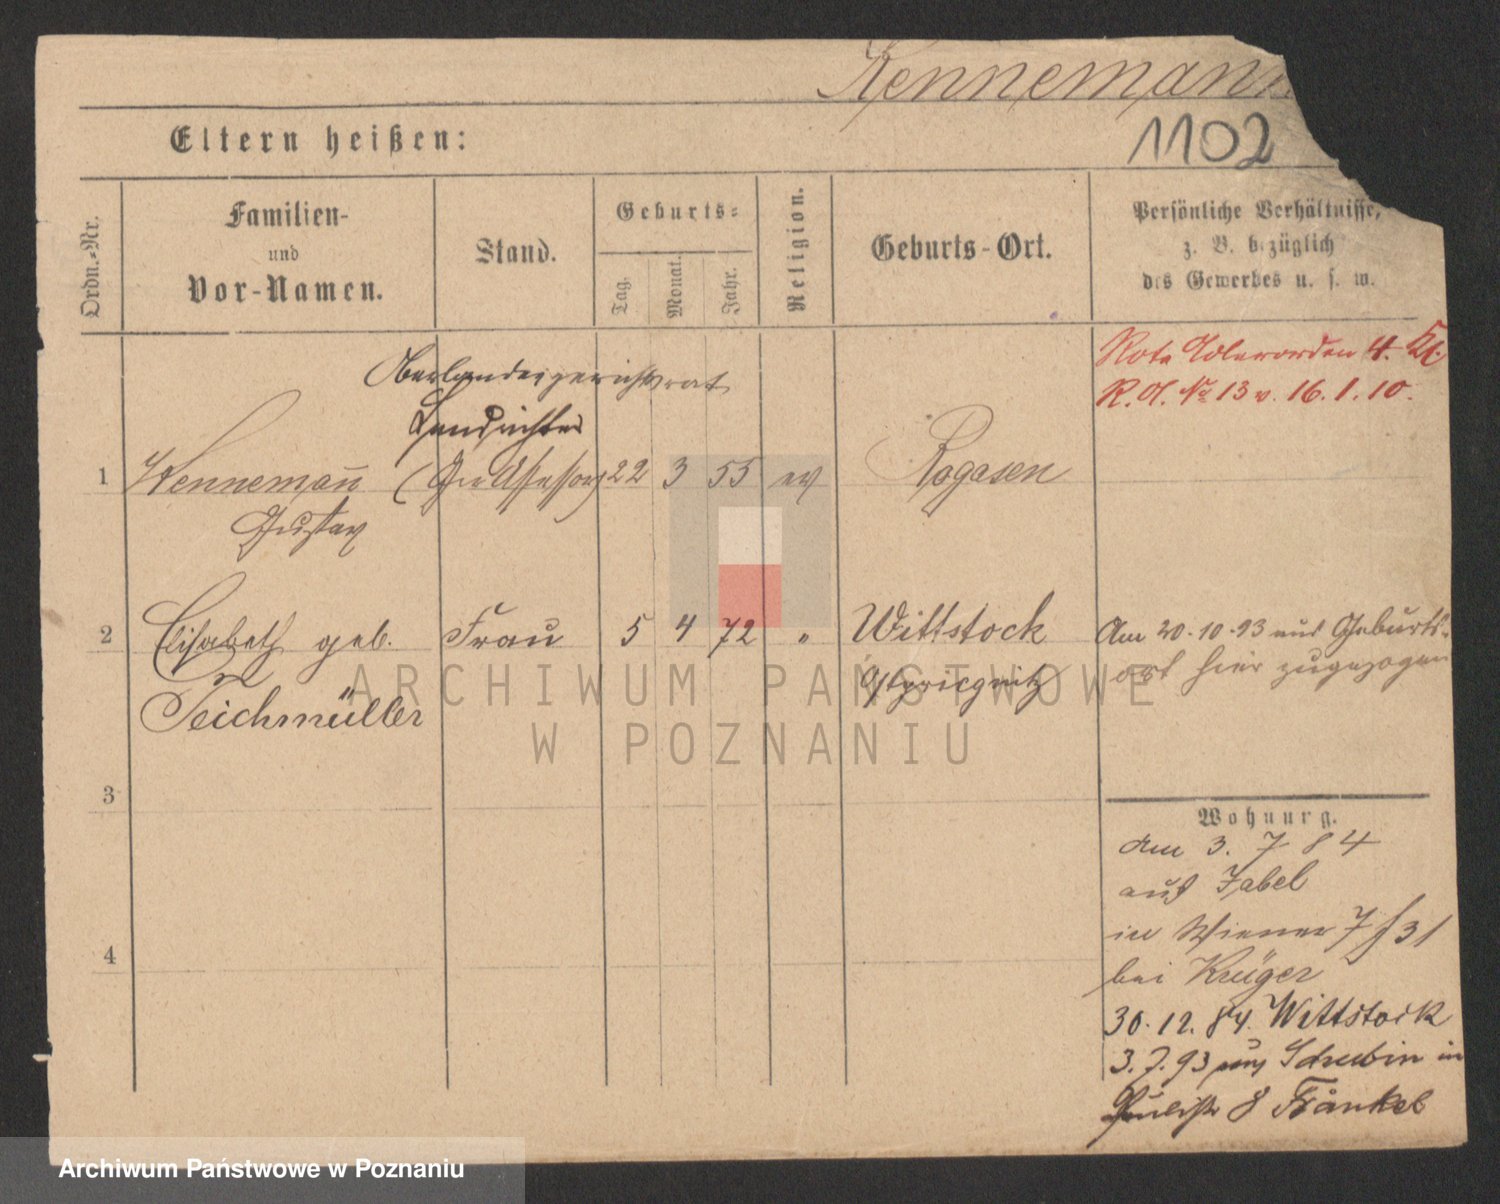 Kennemann
1102
Eltern heißen:
Ordn.-Nr.
Familien-
und
Vor-Namen.
Stand.
Geburts-
Tag.
Monat.
Jahr.
Religion.
Geburts-Ort.
Persönliche Verhältnisse,
z. B. bezüglich
des Gewerbes u. s. w.
Rote Adlerorden 4. Kl.
R. A. No 13 v. 16. 1. 10.
Oberlandesgerichtsrat
Landrichter
1 Kennemann (Ger Assessor) 22 3 55 ev Rogasen
Gustav
2 Elisabeth geb. Frau 5 4 72 " Wittstock Am 20.10.93 aus Geburts-
Ostpriegnitz ort hier zugezogen
Teichmüller
3
Wohnung.
Am 3. 7 84
aus Zabel
in Wiener 7 31
bei Krüger
4
30. 12. 84. Wittstock
3. 7. 93 aus Schubin in
8 Fränkel
ARCHIWUM PAŃSTWOWE
W POZNANIU
Archiwum Państwowe w Poznaniu